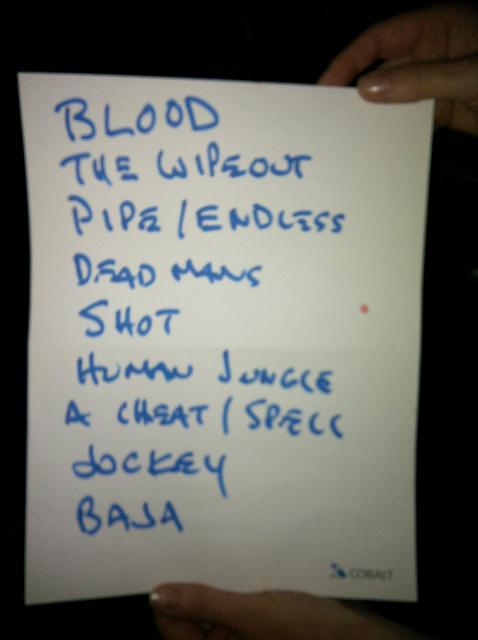 BLOOD
THE WIPEOUT
PIPE / ENDLESS
DEAD MANS
SHOT
HUMAN JUNGLE
A CHEAT / SPELL
JOCKEY
BAJA
COBALT